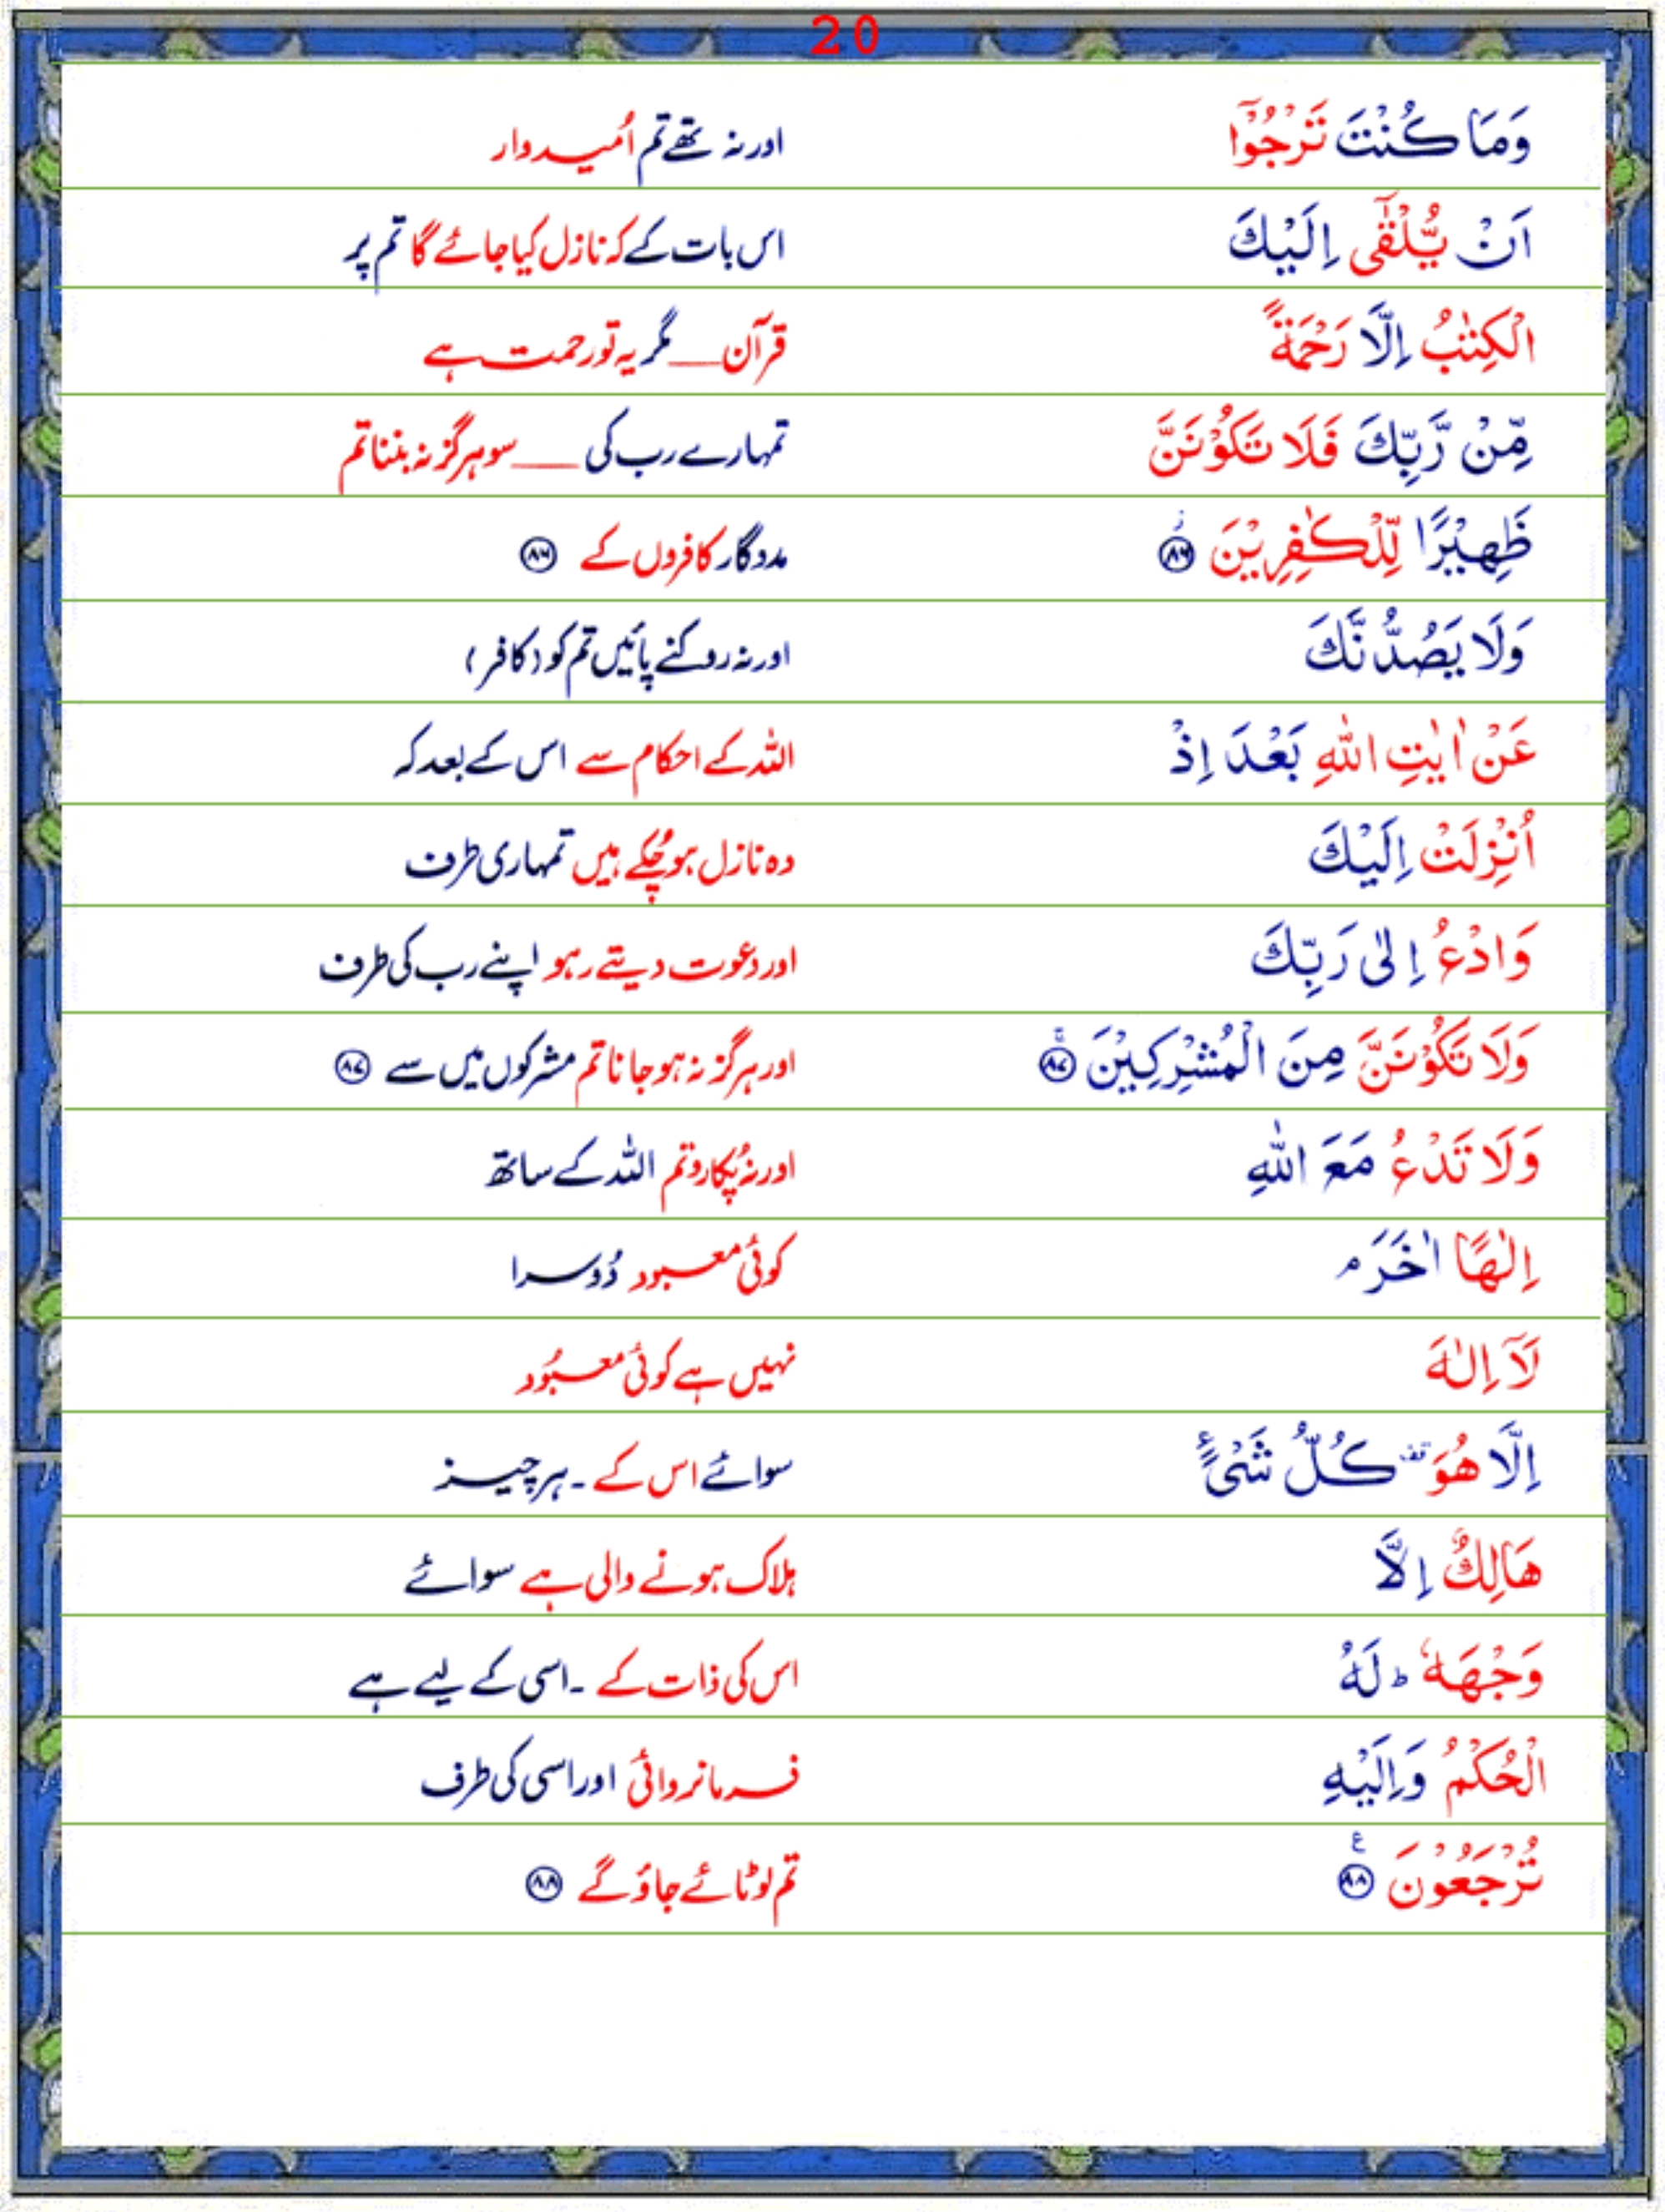 20
وَمَا كُنْتَ تَرْجُوْٓا اور نہ تھے تم اُمیدوار
اَنْ يُّلْقٰٓى اِلَيْكَ اس بات کے کہ نازل کیا جائے گا تم پر
الْكِتٰبُ اِلَّا رَحْمَةً قرآن ــــ مگر یہ تو رحمت ہے
مِّنْ رَّبِّكَ فَلَا تَكُوْنَنَّ تمہارے رب کی ــــ سو ہرگز نہ بننا تم
ظَهِيْرًا لِّلْكٰفِرِيْنَ ۝۸۶ؗ مددگار کافروں کے ۸۶
وَلَا يَصُدُّنَّكَ اور نہ روکنے پائیں تم کو (کافر)
عَنْ اٰيٰتِ اللّٰهِ بَعْدَ اِذْ اللہ کے احکام سے اس کے بعد کہ
اُنْزِلَتْ اِلَيْكَ وہ نازل ہو چُکے ہیں تمہاری طرف
وَادْعُ اِلٰى رَبِّكَ اور دعوت دیتے رہو اپنے رب کی طرف
وَلَا تَكُوْنَنَّ مِنَ الْمُشْرِكِيْنَ ۝۸۷ۚ اور ہرگز نہ ہو جانا تم مشرکوں میں سے ۸۷
وَلَا تَدْعُ مَعَ اللّٰهِ اور نہ پُکارو تم اللہ کے ساتھ
اِلٰهًا اٰخَرَ ۘ کوئی معبود دُوسرا
لَآ اِلٰهَ نہیں ہے کوئی معبُود
اِلَّا هُوَ ۣ كُلُّ شَيْءٍ سوائے اس کے ۔ ہر چیز
هَالِكٌ اِلَّا ہلاک ہونے والی ہے سوائے
وَجْهَهٗ ؕ لَهُ اس کی ذات کے ۔ اسی کے لیے ہے
الْحُكْمُ وَاِلَيْهِ فرمانروائی اور اسی کی طرف
تُرْجَعُوْنَ ۝۸۸ۧ تم لوٹائے جاؤ گے ۸۸